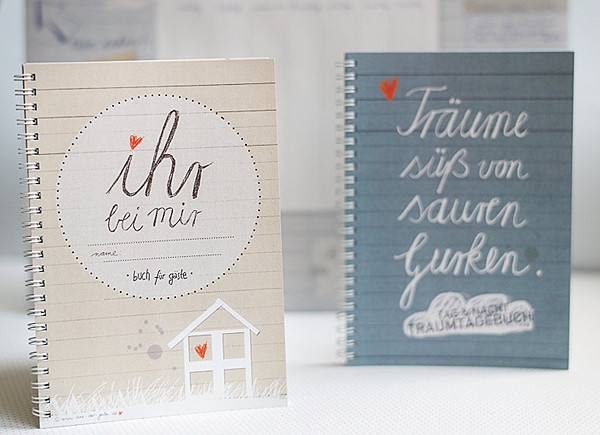 ihr
bei mir
name
· buch für gäste ·
Träume
süß von
sauren
Gurken.
TAG & NACHT
TRAUMTAGEBUCH